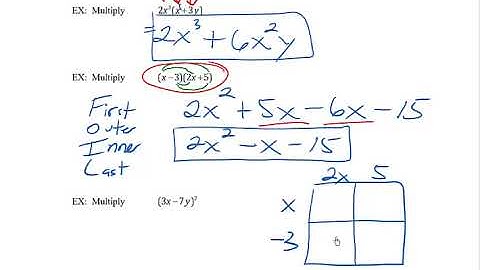 EX: Multiply 2x²(x+3y)
= 2x³ + 6x²y
EX: Multiply (x−3)(2x+5)
First
Outer
Inner
Last
2x² + 5x − 6x − 15
2x² − x − 15
EX: Multiply (3x−7y)²
2x 5
x
−3